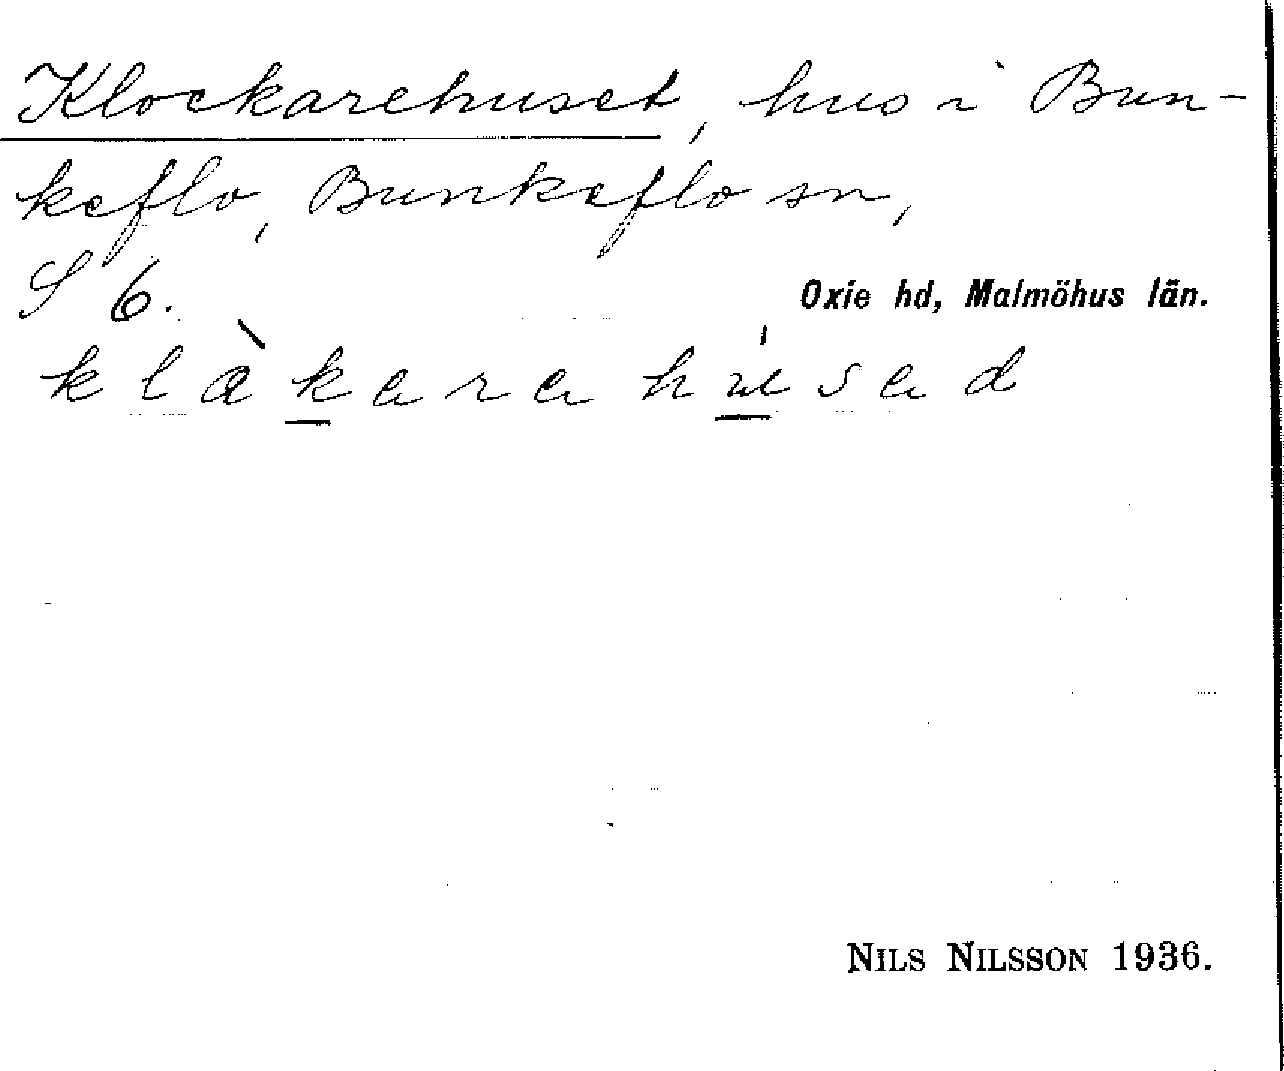 Klockarehuset, hus i Bun-
keflo, Bunkeflo sn,
S 6.
Oxie hd, Malmöhus län.
klàkara húsad
NILS NILSSON 1936.